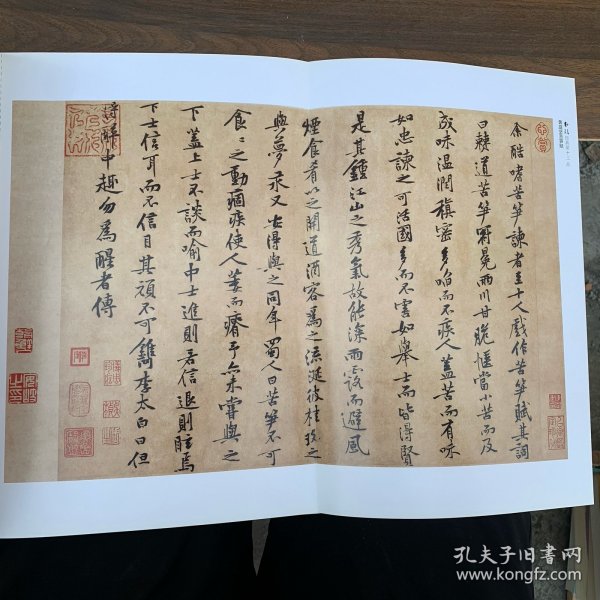 余酷嗜苦笋諫者至十人戲作苦笋賦其詞
曰僰道苦笋冠冕兩川甘脆愜當小苦而及
成味溫潤縝密多啗而不疾人蓋苦而有味
如忠諫之可活國多而不害如舉士而皆得賢
是其鍾江山之秀氣故能深雨露而避風
煙食肴以之開道酒客為之流涎彼桂玫之
與夢汞又安得與之同年蜀人曰苦笋不可
食〻之動痼疾使人萎而瘠予亦未嘗與之
下蓋上士不談而喻中士進則若信退則眩焉
下士信耳而不信目其頑不可鐫李太白曰但
得醉中趣勿為醒者傳
孔夫子旧书网
www.kongfz.com